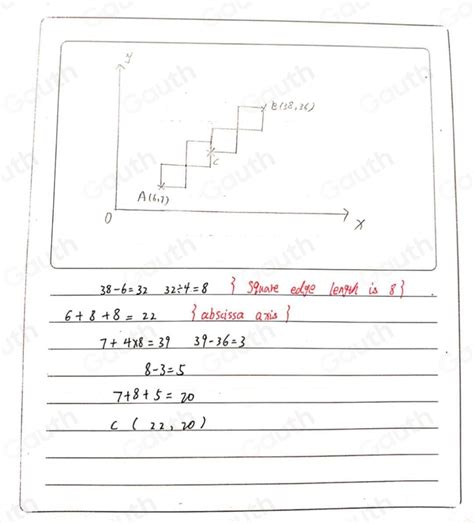 y
B(38,36)
C
A(6,7)
0
x
38-6=32 32÷4=8 } Square edge length is 8}
6+8+8=22 {abscissa axis}
7+4x8=39 39-36=3
8-3=5
7+8+5=20
C (22,20)
Gauth